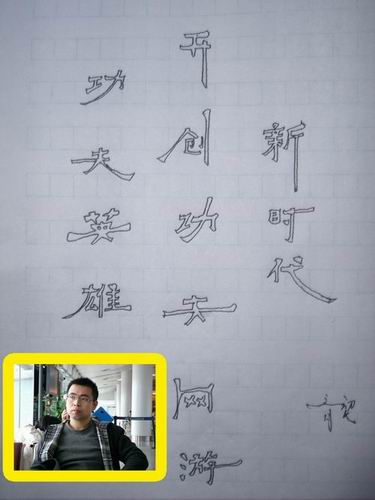 功夫英雄
开创功夫网游
新时代